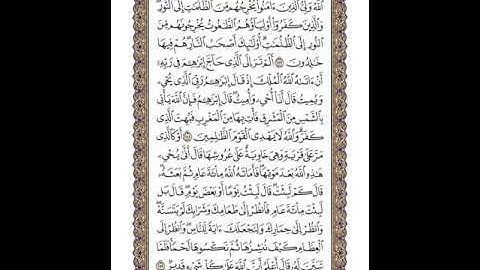 ٱللَّهُ وَلِيُّ ٱلَّذِينَ ءَامَنُوا۟ يُخْرِجُهُم مِّنَ ٱلظُّلُمَٰتِ إِلَى ٱلنُّورِ
وَٱلَّذِينَ كَفَرُوٓا۟ أَوْلِيَآؤُهُمُ ٱلطَّٰغُوتُ يُخْرِجُونَهُم مِّنَ
ٱلنُّورِ إِلَى ٱلظُّلُمَٰتِ أُو۟لَٰٓئِكَ أَصْحَٰبُ ٱلنَّارِ هُمْ فِيهَا
خَٰلِدُونَ ٢٥٧ أَلَمْ تَرَ إِلَى ٱلَّذِى حَآجَّ إِبْرَٰهِۦمَ فِى رَبِّهِۦٓ
أَنْ ءَاتَىٰهُ ٱللَّهُ ٱلْمُلْكَ إِذْ قَالَ إِبْرَٰهِۦمُ رَبِّىَ ٱلَّذِى يُحْىِۦ
وَيُمِيتُ قَالَ أَنَا۠ أُحْىِۦ وَأُمِيتُ قَالَ إِبْرَٰهِۦمُ فَإِنَّ ٱللَّهَ يَأْتِى
بِٱلشَّمْسِ مِنَ ٱلْمَشْرِقِ فَأْتِ بِهَا مِنَ ٱلْمَغْرِبِ فَبُهِتَ ٱلَّذِى
كَفَرَ وَٱللَّهُ لَا يَهْدِى ٱلْقَوْمَ ٱلظَّٰلِمِينَ ٢٥٨ أَوْ كَٱلَّذِى
مَرَّ عَلَىٰ قَرْيَةٍ وَهِىَ خَاوِيَةٌ عَلَىٰ عُرُوشِهَا قَالَ أَنَّىٰ يُحْىِۦ
هَٰذِهِ ٱللَّهُ بَعْدَ مَوْتِهَا فَأَمَاتَهُ ٱللَّهُ مِا۟ئَةَ عَامٍ ثُمَّ بَعَثَهُۥ
قَالَ كَمْ لَبِثْتَ قَالَ لَبِثْتُ يَوْمًا أَوْ بَعْضَ يَوْمٍ قَالَ بَل
لَّبِثْتَ مِا۟ئَةَ عَامٍ فَٱنظُرْ إِلَىٰ طَعَامِكَ وَشَرَابِكَ لَمْ يَتَسَنَّهْ
وَٱنظُرْ إِلَىٰ حِمَارِكَ وَلِنَجْعَلَكَ ءَايَةً لِّلنَّاسِ وَٱنظُرْ إِلَى
ٱلْعِظَامِ كَيْفَ نُنشِزُهَا ثُمَّ نَكْسُوهَا لَحْمًا فَلَمَّا
تَبَيَّنَ لَهُۥ قَالَ أَعْلَمُ أَنَّ ٱللَّهَ عَلَىٰ كُلِّ شَىْءٍ قَدِيرٌ ٢٥٩